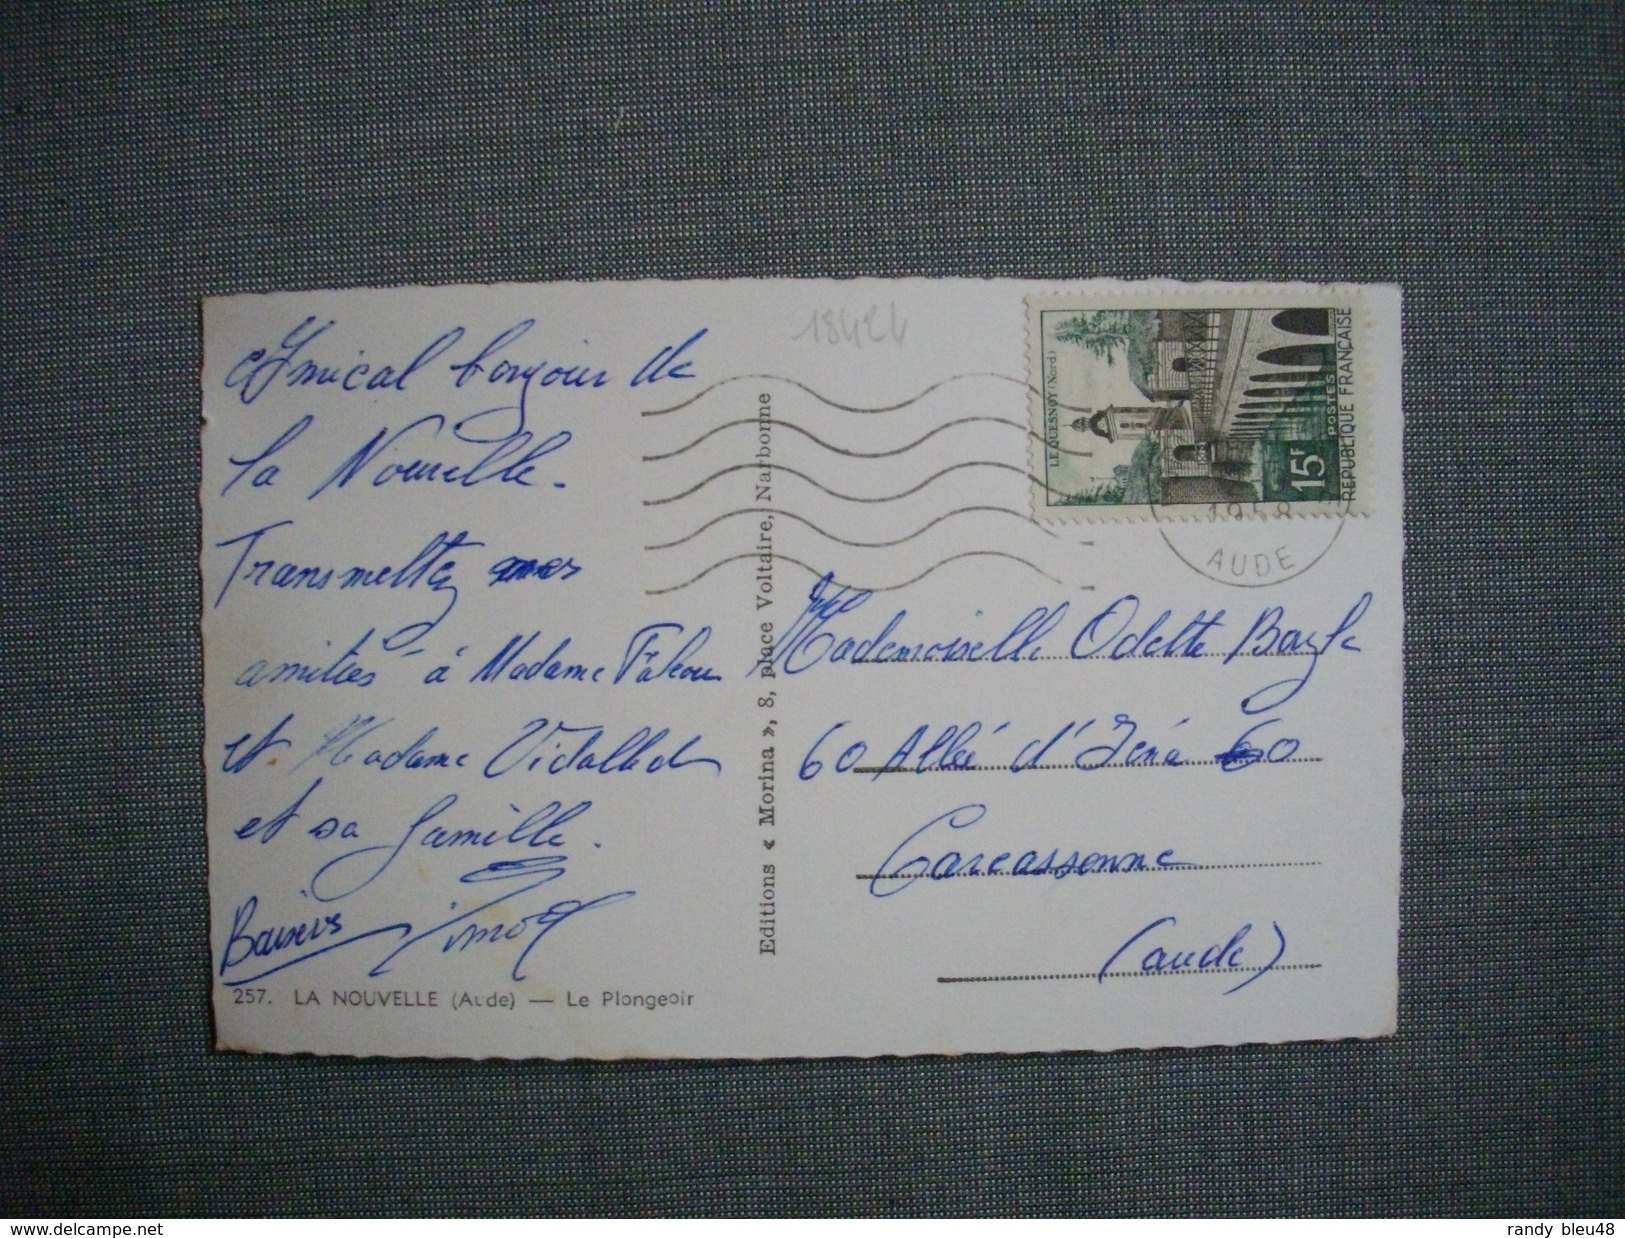 18424
Amical bonjour de
la Nouvelle.
Transmettez mes
amitiés à Madame
et Madame
et sa famille.
Baisers
257. LA NOUVELLE (Aude) — Le Plongeoir
Editions « Morina », 8, place Voltaire, Narbonne
LE QUESNOY (Nord)
15F
POSTES
REPUBLIQUE FRANÇAISE
1958
AUDE
Mademoiselle Odette Bayle
60 Allée d'Iéna 60
Carcassonne
(aude)
www.delcampe.net
randy_bleu48